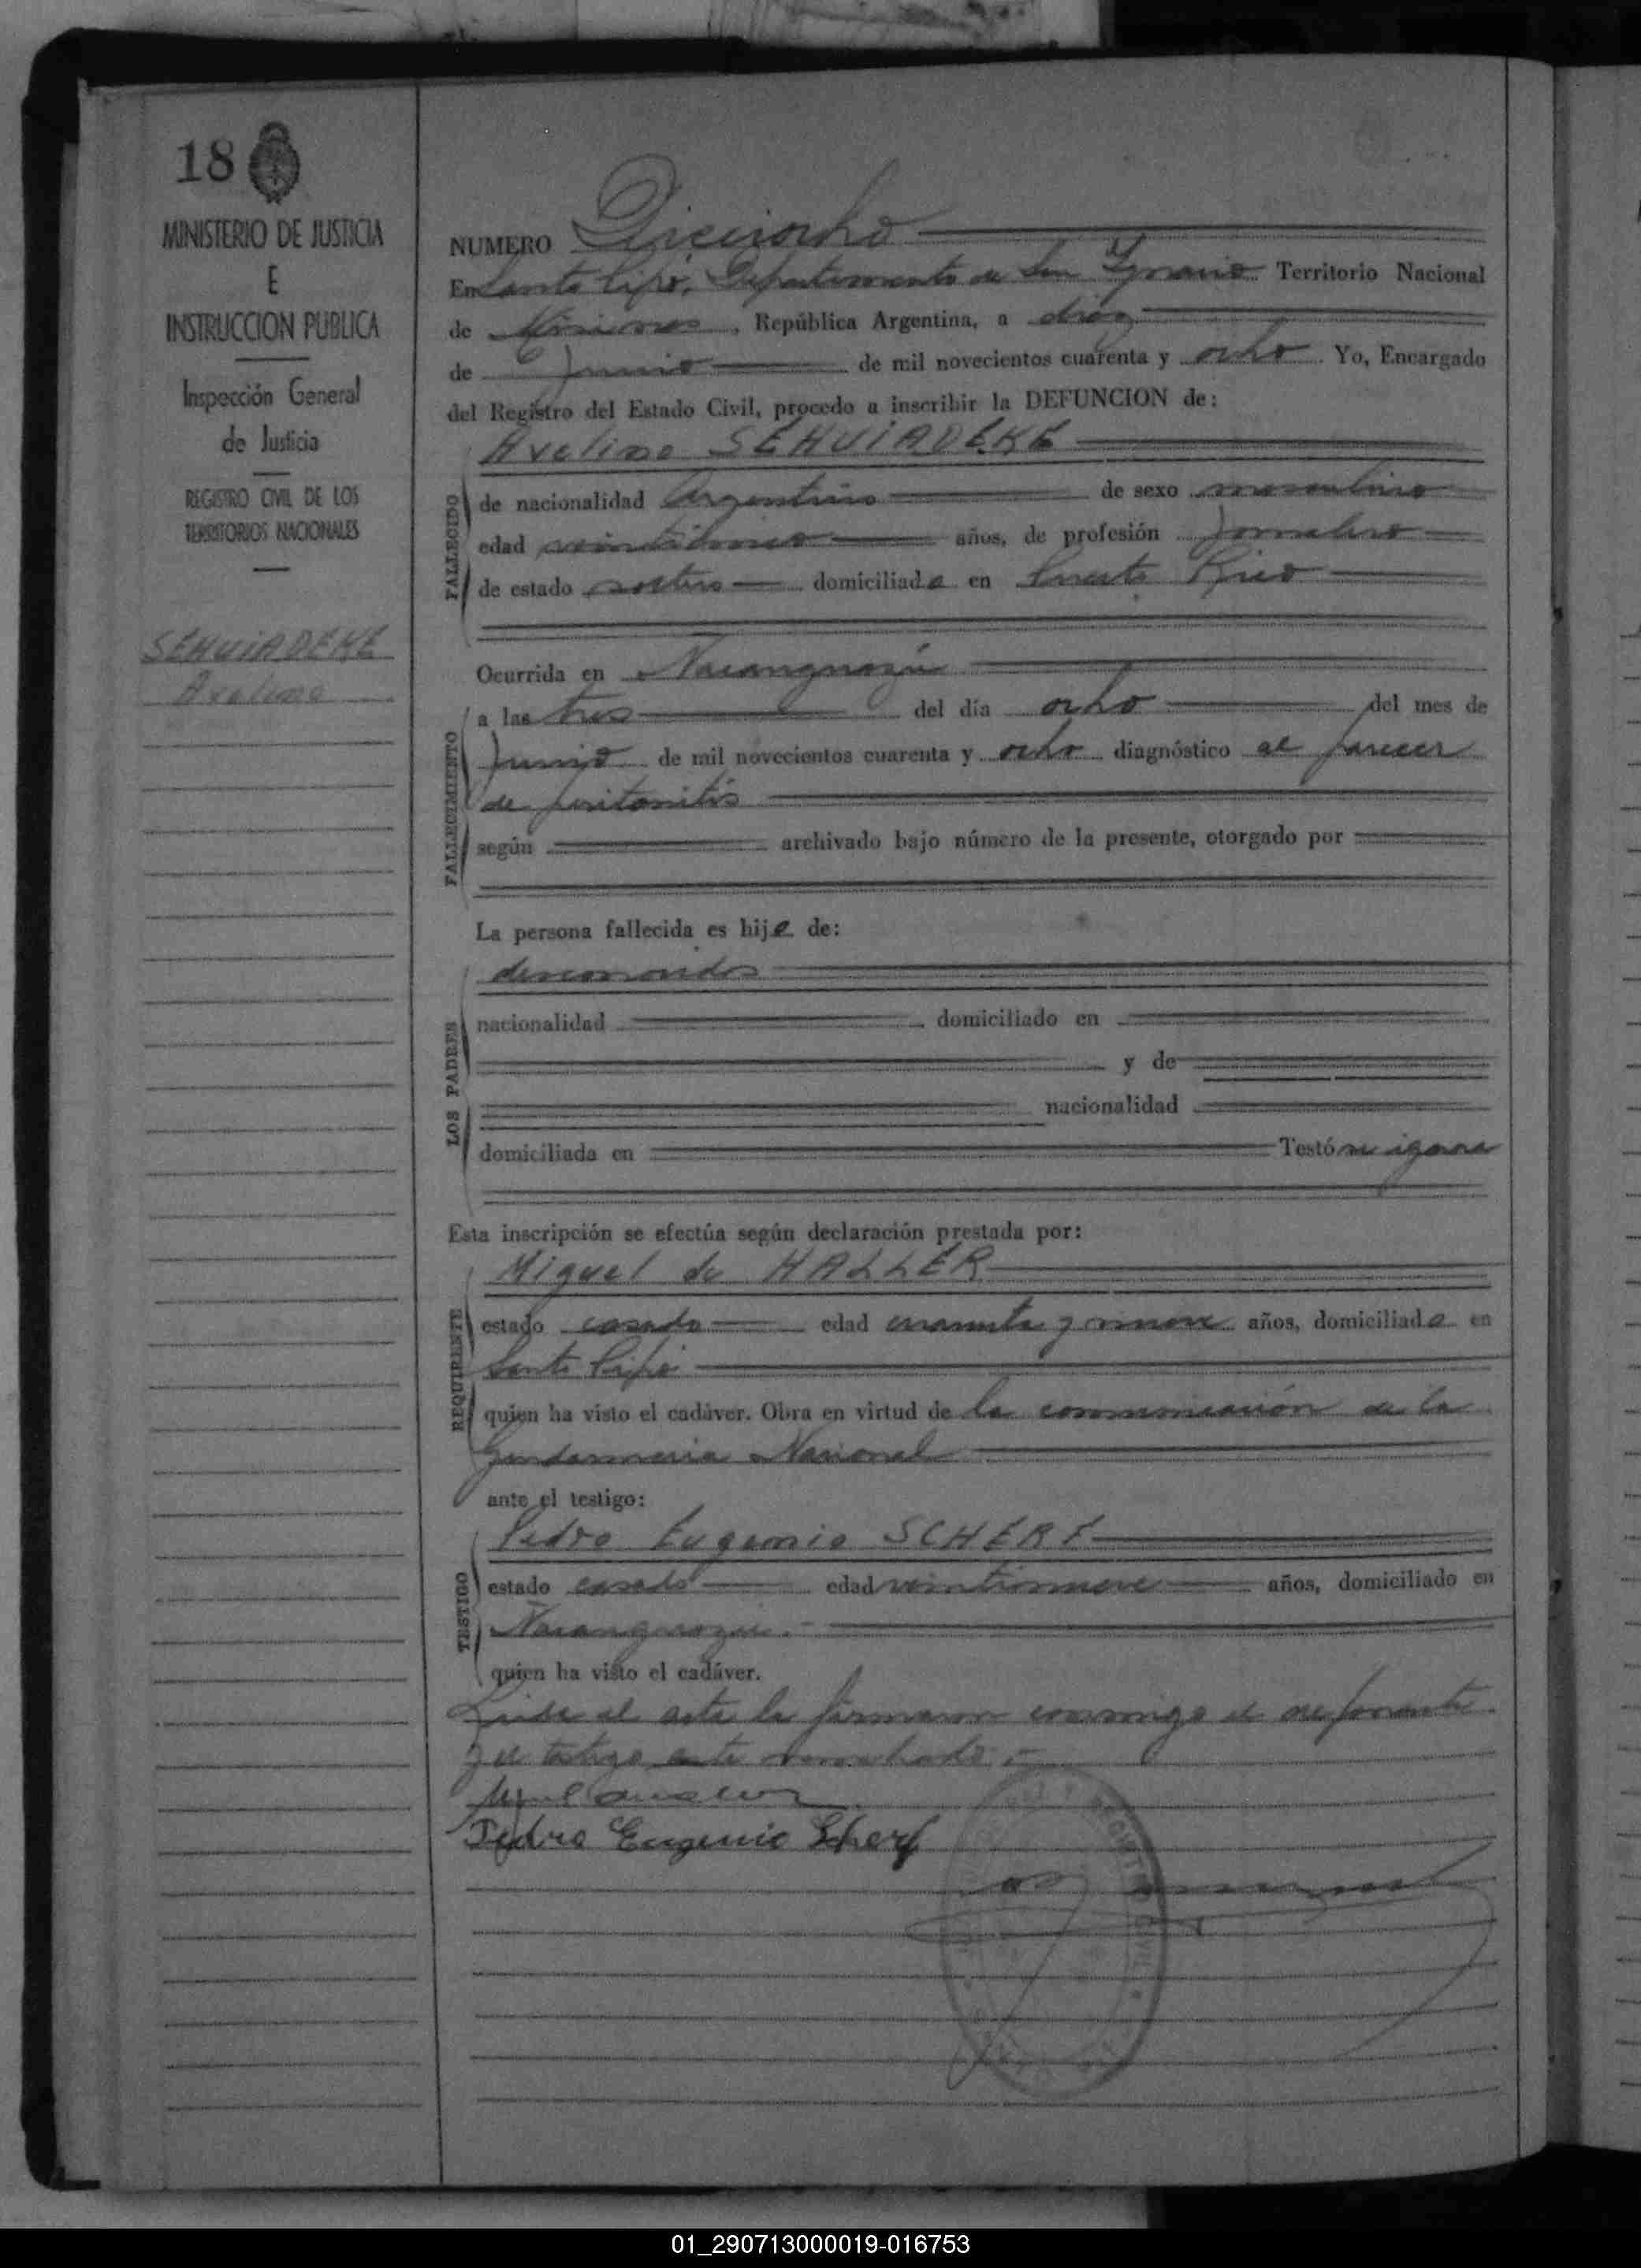 18
MINISTERIO DE JUSTICIA
E
INSTRUCCION PUBLICA
Inspección General
de Justicia
REGISTRO CIVIL DE LOS
TERRITORIOS NACIONALES
SEHUIADEKE
Avelino
NUMERO Dieciocho
En Santo Pipó, Departamento de San Ygnacio Territorio Nacional
de Misiones, República Argentina, a diez
de Junio de mil novecientos cuarenta y ocho Yo, Encargado
del Registro del Estado Civil, procedo a inscribir la DEFUNCION de:
Avelino SEHUIADEKE
FALLECIDO
de nacionalidad Argentino de sexo masculino
edad años, de profesión Jornalero
de estado soltero domiciliado en Puerto Rico
Ocurrida en
FALLECIMIENTO
a las tres del día ocho del mes de
Junio de mil novecientos cuarenta y ocho diagnóstico al parecer
de peritonitis
según archivado bajo número de la presente, otorgado por
La persona fallecida es hijo de:
LOS PADRES
desconocidos
nacionalidad domiciliado en
y de
nacionalidad
domiciliada en Testó se ignora
Esta inscripción se efectúa según declaración prestada por:
REQUIRENTE
Miguel de HALLER
estado casado edad cuarenta y nueve años, domiciliado en
Santo Pipó
quien ha visto el cadáver. Obra en virtud de la comunicación de la
Gendarmeria Nacional
ante el testigo:
TESTIGO
Pedro Eugenio SCHERF
estado casado edad veintinueve años, domiciliado en
quien ha visto el cadáver.
Leida el acta la firmaron conmigo el
y el testigo
Pedro Eugenio Scherf
REGISTRO CIVIL
01_290713000019-016753